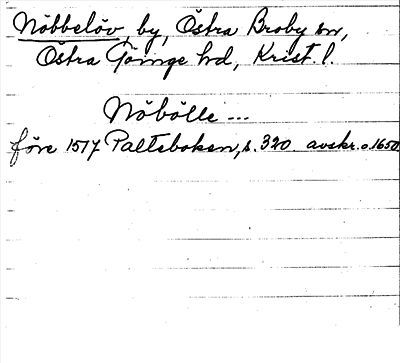 Nöbbelöv by, Östra Broby sn,
Östra Göinge hd, Krist. l.
Nöbölle ---
före 1517 Palteboken, s. 320. avskr. o. 1650.